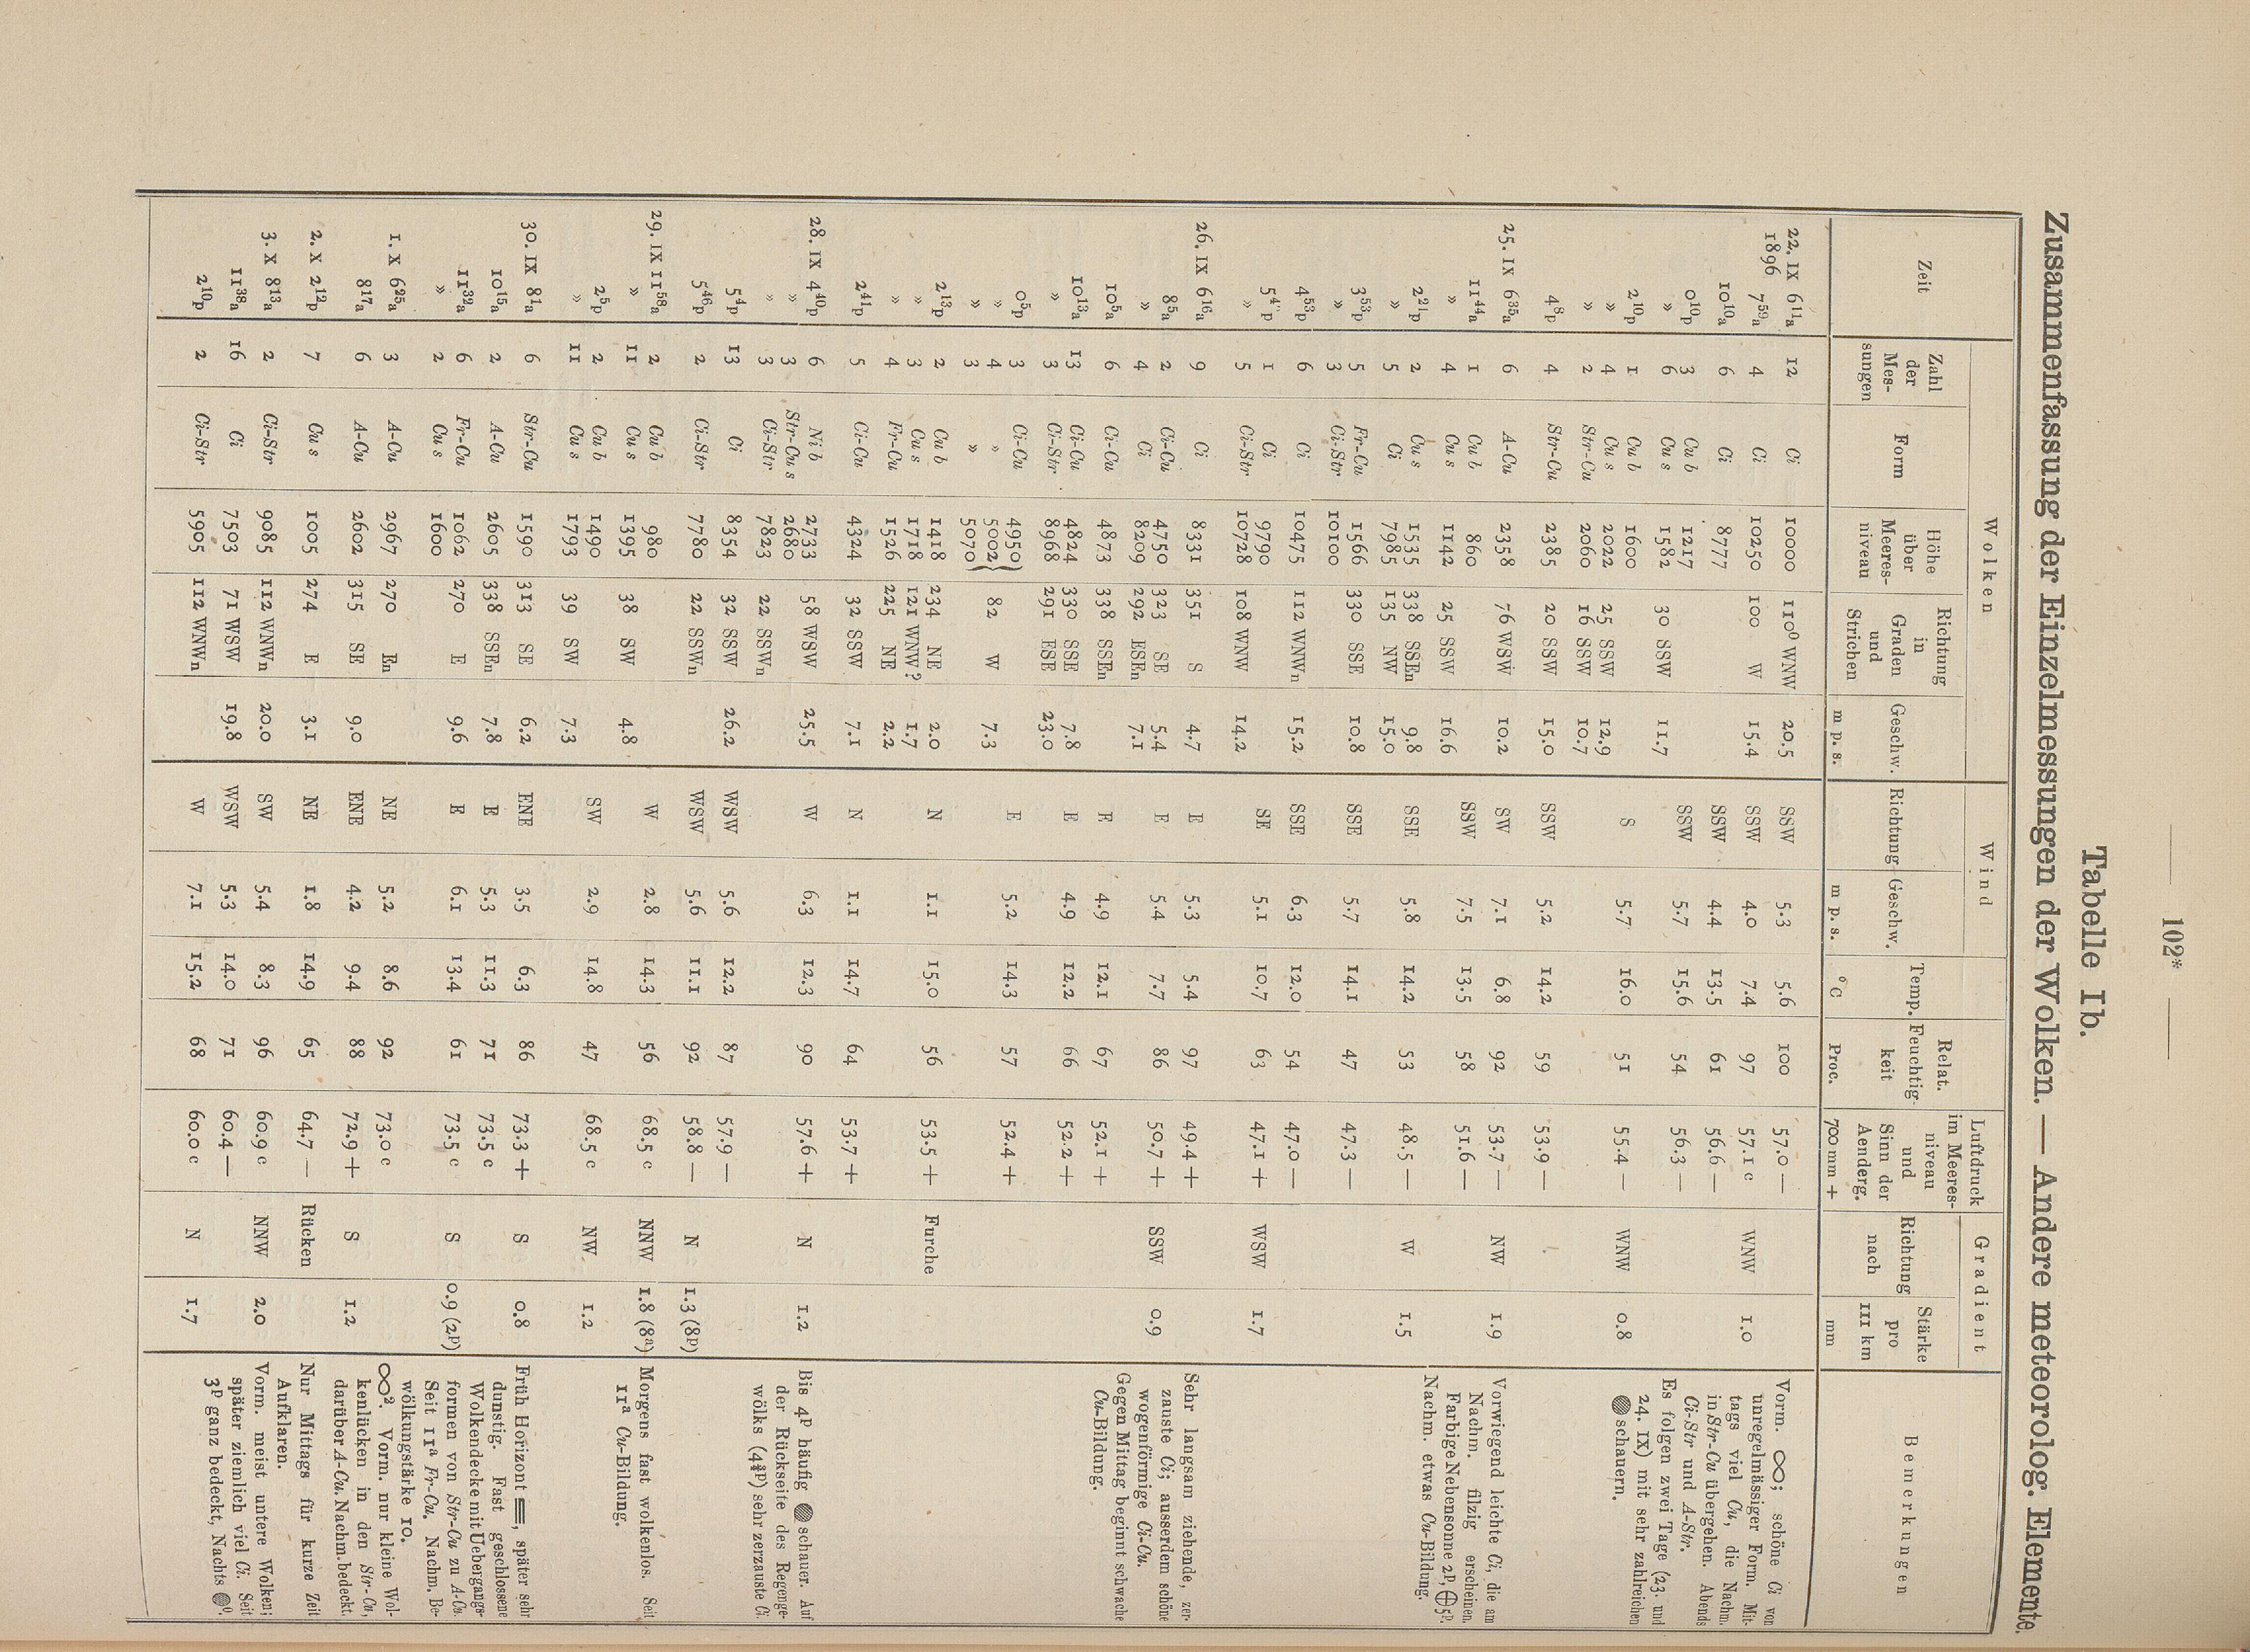 102*
Tabelle Ib.
Zusammenfassung der Einzelmessungen der Wolken. — Andere meteorolog. Elemente.
Wolken Wind Gradient
Zeit Zahl der Mes-sungen Form Höhe über Meeres-niveau Richtung in Graden und Strichen Geschw. m p. s. Richtung Geschw. m p. s. Temp. °C Relat. Feuchtig-keit Proc. Luftdruck im Meeres-niveau und Sinn der Aenderg. 700 mm + Richtung nach Stärke pro 111 km mm Bemerkungen
22. IX 6¹¹a 12 Ci 10000 110° WNW 20.5 SSW 5.3 5.6 100 57.0 —
1896 7⁵⁹a 4 Ci 10250 100 W 15.4 SSW 4.0 7.4 97 57.1 c WNW 1.0
10¹⁰a 6 Ci 8777 SSW 4.4 13.5 61 56.6 —
0¹⁰p 3 Cu b 1217 SSW 5.7 15.6 54 56.3 —
» 6 Cu s 1582 30 SSW 11.7
2¹⁰p 1 Cu b 1600 S 5.7 16.0 51 55.4 — WNW 0.8
» 4 Cu s 2022 25 SSW 12.9
» 2 Str-Cu 2060 16 SSW 10.7
4⁸p 4 Str-Cu 2385 20 SSW 15.0 SSW 5.2 14.2 59 53.9 —
Vorm. ∞; schöne Ci von
unregelmässiger Form. Mit-
tags viel Cu, die Nachm.
in Str-Cu übergehen. Abends
Ci-Str und A-Str.
Es folgen zwei Tage (23. und
24. IX) mit sehr zahlreichen
schauern.
25. IX 6³⁵a 6 A-Cu 2358 76 WSW 10.2 SW 7.1 6.8 92 53.7 — NW 1.9
11⁴⁴a 1 Cu b 860 SSW 7.5 13.5 58 51.6 —
» 4 Cu s 1142 25 SSW 16.6
2²¹p 2 Cu s 1535 338 SSEn 9.8 SSE 5.8 14.2 53 48.5 — W 1.5
» 5 Ci 7985 135 NW 15.0
3⁵³p 5 Fr-Cu 1566 330 SSE 10.8 SSE 5.7 14.1 47 47.3 —
» 3 Ci-Str 10100
4⁵³p 6 Ci 10475 112 WNWn 15.2 SSE 6.3 12.0 54 47.0 —
5⁴ p 1 Ci 9790 SE 5.1 10.7 63 47.1 + WSW 1.7
» 5 Ci-Str 10728 108 WNW 14.2
Vorwiegend leichte Ci, die am
Nachm. filzig erscheinen.
Farbige Nebensonne 2ᵖ, ⊕5ᵖ.
Nachm. etwas Cu-Bildung.
26. IX 6¹⁶a 9 Ci 8331 351 S 4.7 E 5.3 5.4 97 49.4 +
8⁵a 2 Ci-Cu 4750 323 SE 5.4 E 5.4 7.7 86 50.7 + SSW 0.9
» 4 Ci 8209 292 ESEn 7.1
10⁵a 6 Ci-Cu 4873 338 SSEn E 4.9 12.1 67 52.1 +
10¹³a 13 Ci-Cu 4824 330 SSE 7.8 E 4.9 12.2 66 52.2 +
» 3 Ci-Str 8968 291 ESE 23.0
0⁵p 3 Ci-Cu 4950 E 5.2 14.3 57 52.4 +
» 4 » 5002 82 W 7.3
» 3 » 5070
2¹³p 2 Cu b 1418 234 NE 2.0 N 1.1 15.0 56 53.5 + Furche
» 3 Cu s 1718 121 WNW? 1.7
» 4 Fr-Cu 1526 225 NE 2.2
2⁴¹p 5 Ci-Cu 4324 32 SSW 7.1 N 1.1 14.7 64 53.7 +
Sehr langsam ziehende, zer-
zauste Ci; ausserdem schöne
wogenförmige Ci-Cu.
Gegen Mittag beginnt schwache
Cu-Bildung.
28. IX 4⁴⁰p 6 Ni b 2733 58 WSW 25.5 W 6.3 12.3 90 57.6 + N 1.2
» 3 Str-Cu s 2680
» 3 Ci-Str 7823 22 SSWn
5⁴p 13 Ci 8354 32 SSW 26.2 WSW 5.6 12.2 87 57.9 —
5⁴⁶p 2 Ci-Str 7780 22 SSWn WSW 5.6 11.1 92 58.8 — N 1.3 (8ᵖ)
Bis 4ᵖ häufig schauer. Auf
der Rückseite des Regenge-
wölks (4¾ᵖ) sehr zerzauste Ci.
29. IX 11⁵⁸a 2 Cu b 980 W 2.8 14.3 56 68.5 c NNW 1.8 (8ᵃ)
» 11 Cu s 1395 38 SW 4.8
2⁵p 2 Cu b 1490 SW 2.9 14.8 47 68.5 c NW 1.2
» 11 Cu s 1793 39 SW 7.3
Morgens fast wolkenlos. Seit
11ᵃ Cu-Bildung.
30. IX 8¹a 6 Str-Cu 1590 313 SE 6.2 ENE 3.5 6.3 86 73.3 + S 0.8
10¹⁵a 2 A-Cu 2605 338 SSEn 7.8 E 5.3 11.3 71 73.5 c
11³²a 6 Fr-Cu 1062 270 E 9.6 E 6.1 13.4 61 73.5 c S 0.9 (2ᵖ)
» 2 Cu s 1600
Früh Horizont ≡, später sehr
dunstig. Fast geschlossene
Wolkendecke mit Uebergangs-
formen von Str-Cu zu A-Cu.
Seit 11ᵃ Fr-Cu. Nachm. Be-
wölkungstärke 10.
1. X 6²⁵a 3 A-Cu 2967 270 En NE 5.2 8.6 92 73.0 c
8¹⁷a 6 A-Cu 2602 315 SE 9.0 ENE 4.2 9.4 88 72.9 + S 1.2
∞². Vorm. nur kleine Wol-
kenlücken in den Str-Cu,
darüber A-Cu. Nachm. bedeckt.
2. X 2¹²p 7 Cu s 1005 274 E 3.1 NE 1.8 14.9 65 64.7 — Rücken
Nur Mittags für kurze Zeit
Aufklaren.
3. X 8¹³a 2 Ci-Str 9085 112 WNWn 20.0 SW 5.4 8.3 96 60.9 c NNW 2.0
11³⁸a 16 Ci 7503 71 WSW 19.8 WSW 5.3 14.0 71 60.4 —
2¹⁰p 2 Ci-Str 5905 112 WNWn W 7.1 15.2 68 60.0 c N 1.7
Vorm. meist untere Wolken;
später ziemlich viel Ci. Seit
3ᵖ ganz bedeckt, Nachts ⁰.